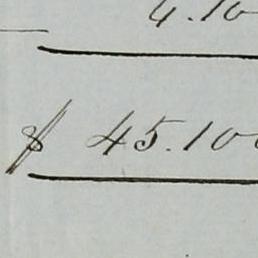 4.10
$ 45.100